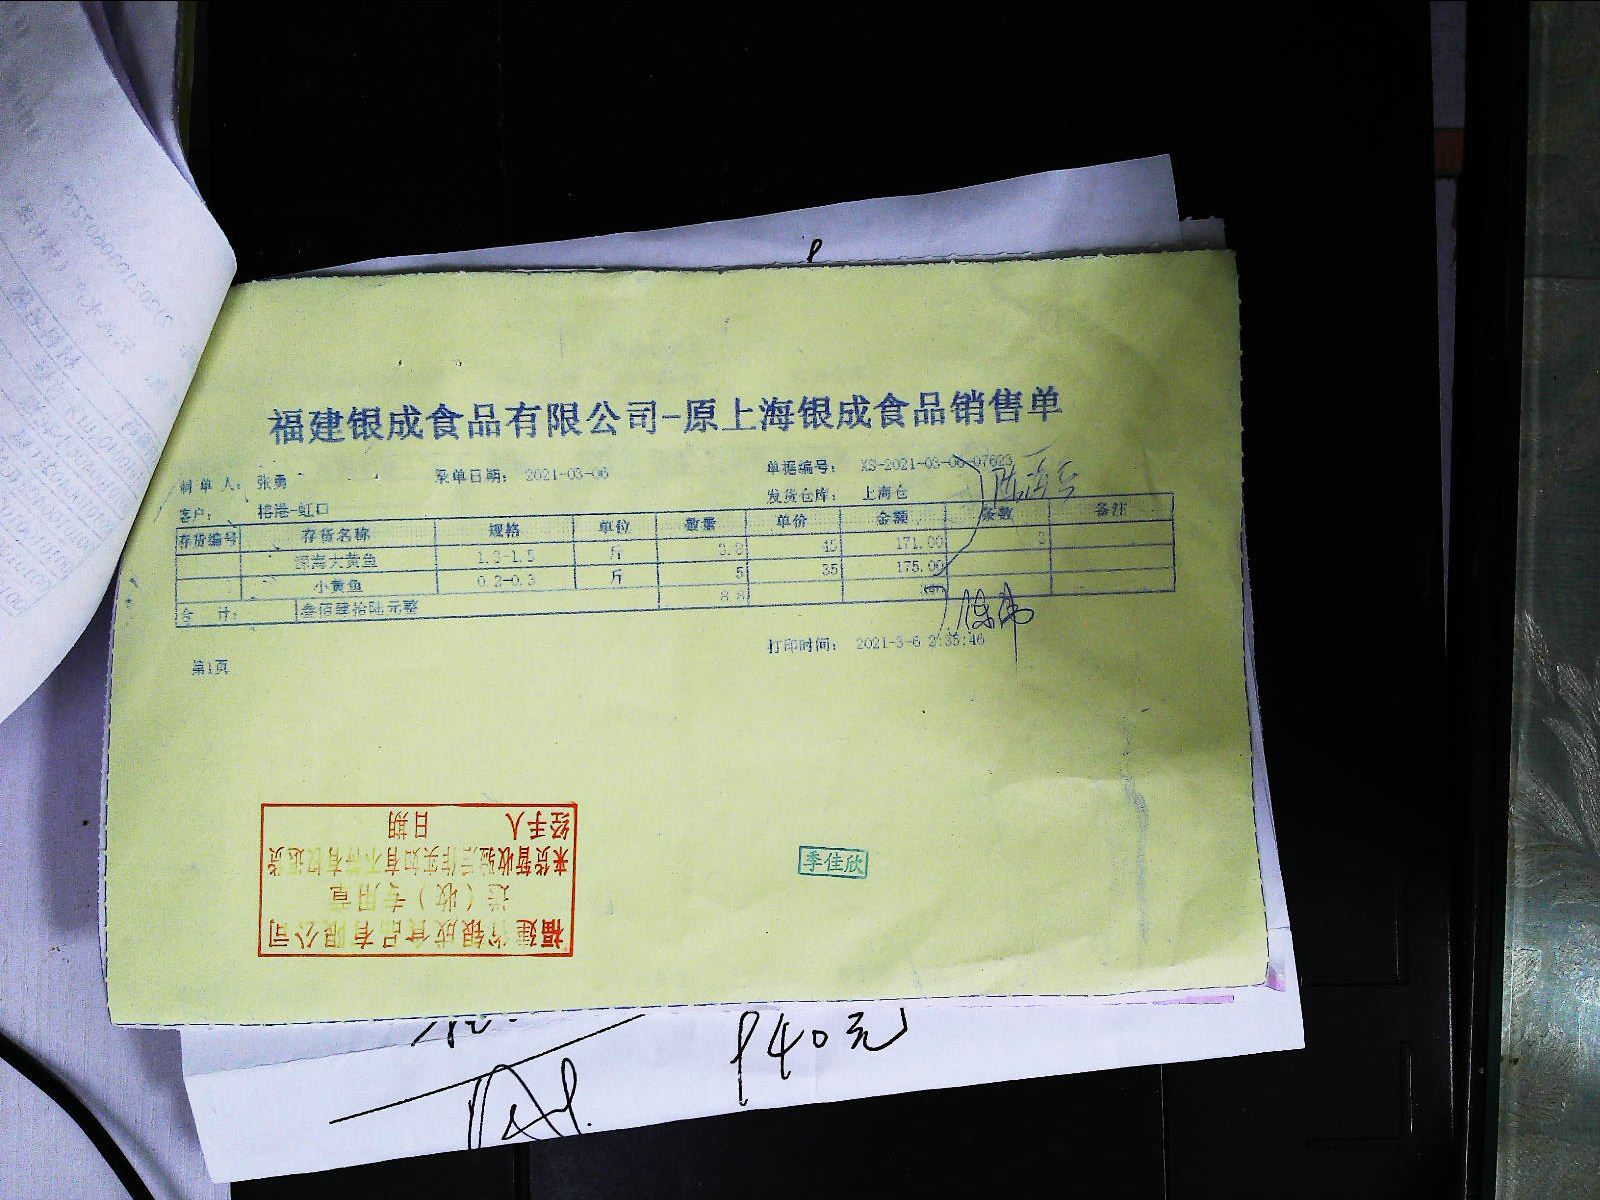 福建银成食品有限公司-原上海银成食品销售单
制单人： 张勇 录单日期： 2021-03-06 单据编号： XS-2021-03-06-07623
客户： 榕港-虹口 发货仓库： 上海仓
存货编号 存货名称 规格 单位 数量 单价 金额 条数 备注
深海大黄鱼 1.3-1.5 斤 3.8 45 171.00 3
小黄鱼 0.2-0.3 斤 5 35 175.00
合 计： 叁佰肆拾陆元整 8.8
打印时间： 2021-3-6 2:35:46
第1页
福建省银成食品有限公司
送（收）专用章
来货暂收验后作实如有不符有权退货
经手人 日期
季佳欣
940元